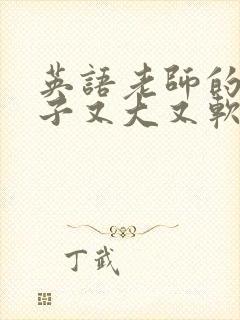 英語老師的
子又大又軟
丁武